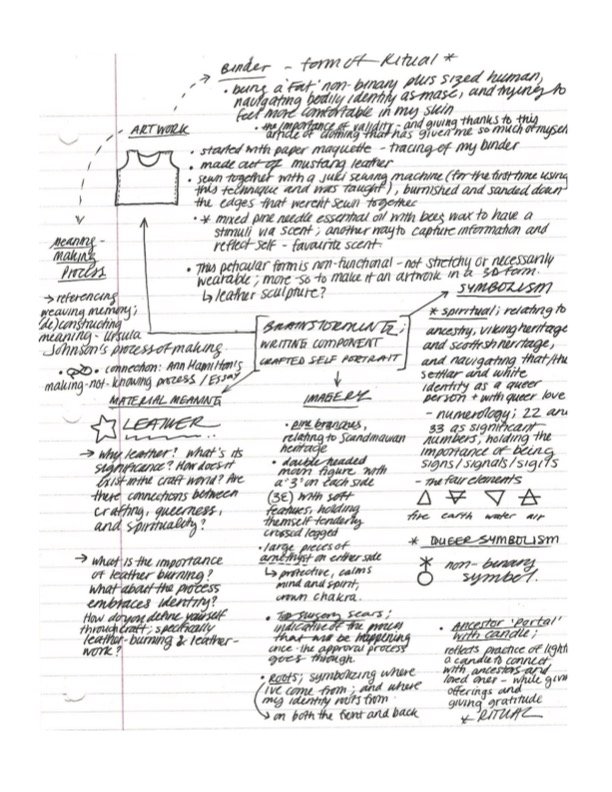 BINDER - form of Ritual *
• being a 'Fat' non-binary plus sized human,
navigating bodily identity as masc, and trying to
feel more comfortable in my skin
• the importance of validity - and giving thanks to this
article of clothing that has given me so much of myself
ARTWORK
• started with paper maquette - tracing of my binder
• made out of mustang leather
• sewn together with a juki sewing machine (for the first time using
this technique and was taught), burnished and sanded down
the edges that werent sewn together
• * mixed pine needle essential oil with bees wax to have a
stimuli via scent; another way to capture information and
reflect self - favourite scent.
• This peticular form is non-functional - not stretchy or necessarily
wearable; more so to make it an artwork in a 3D form.
↳ leather sculpture?
Meaning-
Making
Process
→ referencing
weaving memory;
(de)constructing
meaning - Ursula
Johnson's process of making.
• connection: Ann Hamilton's
making-not-knowing process / Essay
BRAINSTORMING;
WRITING COMPONENT
CRAFTED SELF PORTRAIT
MATERIAL MEANING
LEATHER
→ Why leather? what's its
significance? How does it
exist in the craft world? Are
there connections between
crafting, queerness,
and spirituality?
→ what is the importance
of leather burning?
What about the process
embraces identity?
How do you define yourself
through craft; specifically
leather-burning & leather-
work?
IMAGERY
• pine branches,
relating to Scandinavian
heritage
• double headed
main figure with
a '3' on each side
(3Ɛ) with soft
features, holding
themself tenderly
crossed legged
• large pieces of
amethyst on either side
↳ protective, calms
mind and spirit,
crown chakra.
• Top surgery scars;
indicative of the process
that will be happening
once the approval process
goes through
• Roots; symbolizing where
ive come from; and where
my identity roots from
→ on both the front and back
SYMBOLISM
* spiritual; relating to
ancestry, viking heritage
and scottish heritage,
and navigating that/the
settlar and white
identity as a queer
person + with queer love
- numerology; 22 and
33 as significant
numbers, holding the
importance of being
signs/signals/sigils
- the four elements
fire earth water air
* QUEER SYMBOLISM
non-binary
symbol.
• Ancestor 'portal'
with candle;
reflects practice of light
a candle to connect
with ancestors and
loved ones - while givin
offerings and
giving gratitude
* RITUAL